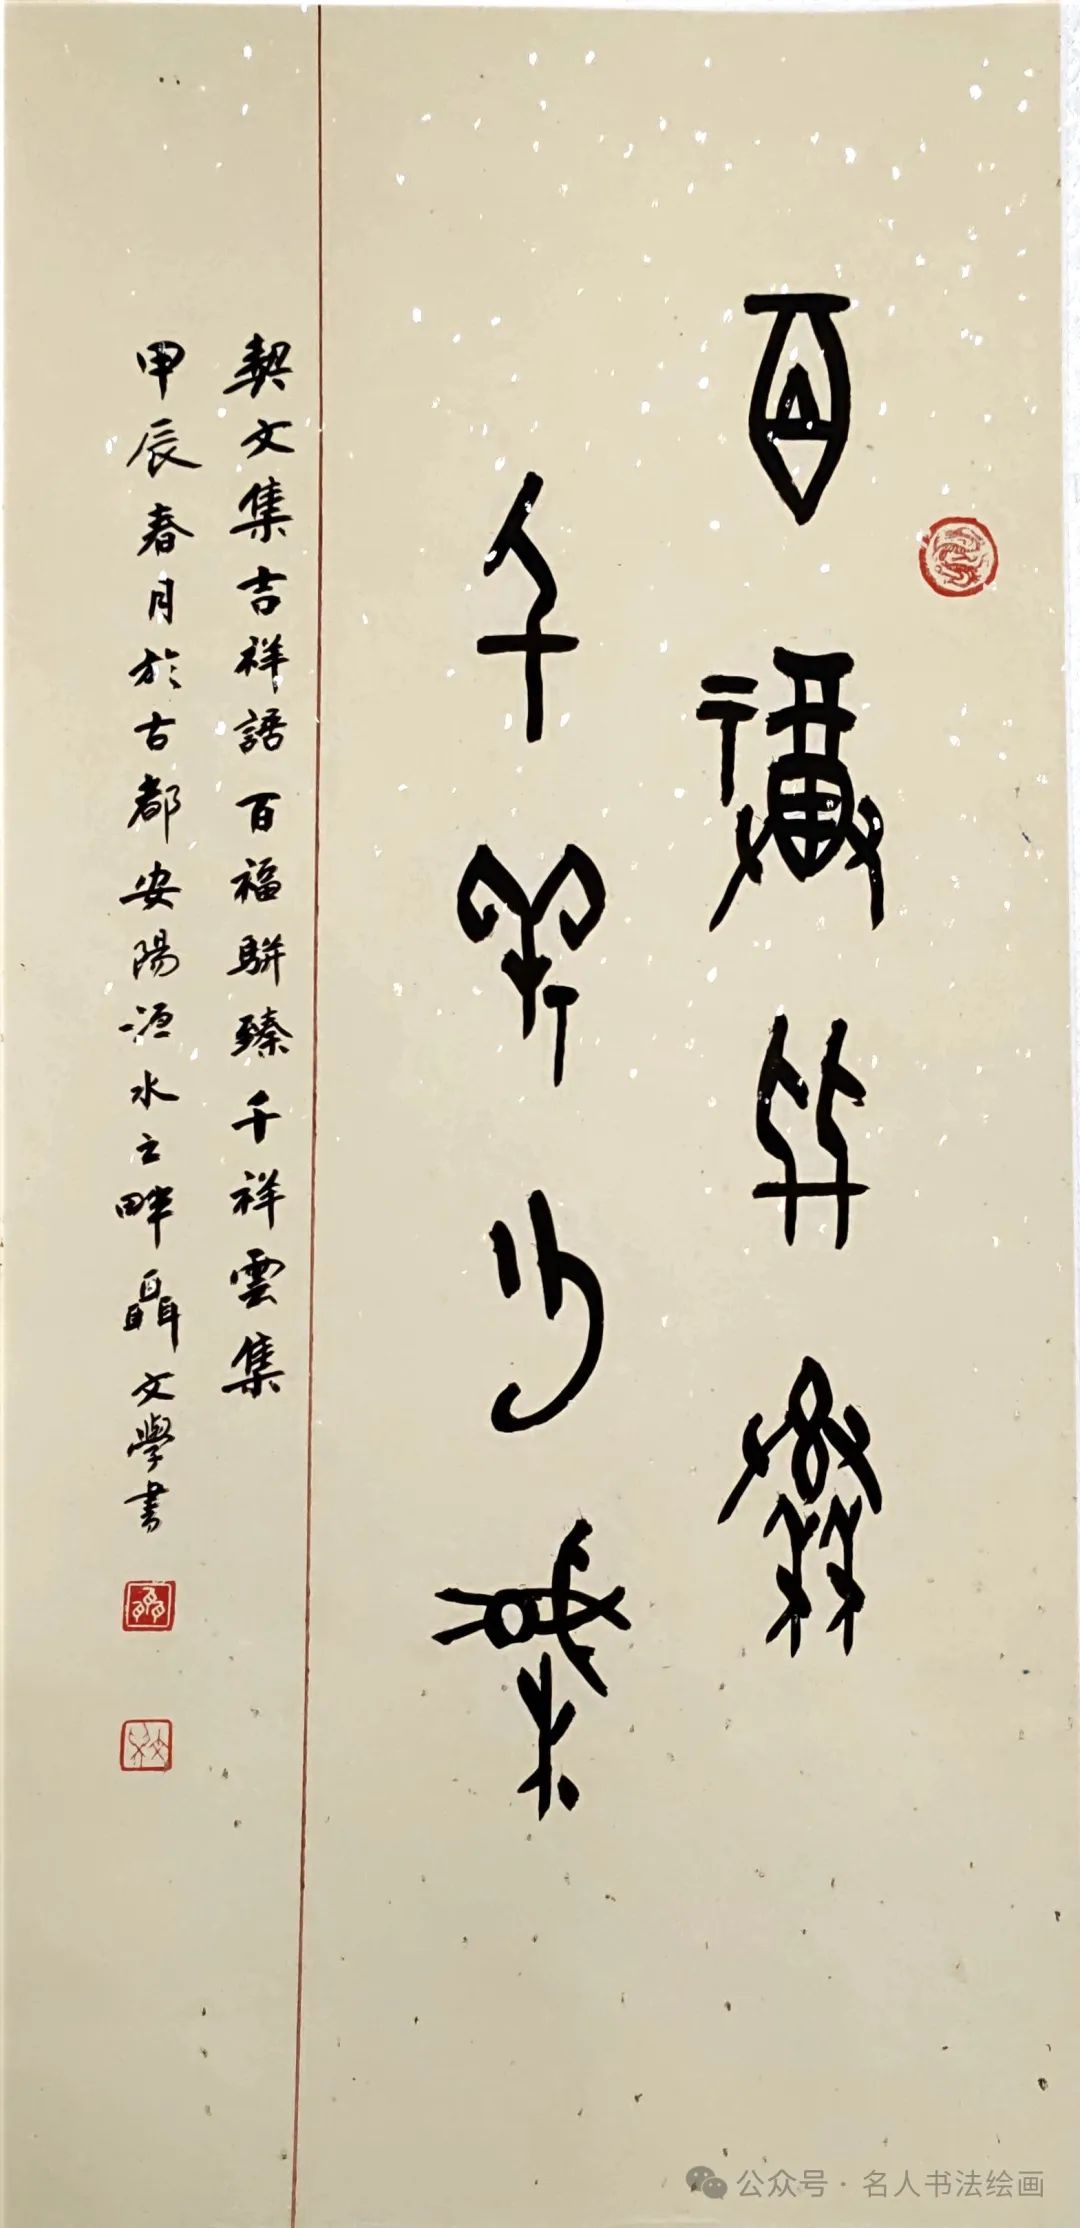 百福駢臻
千祥雲集
契文集吉祥語百福駢臻千祥雲集
甲辰春月於古都安陽洹水之畔聶文學書
公众号·名人书法绘画